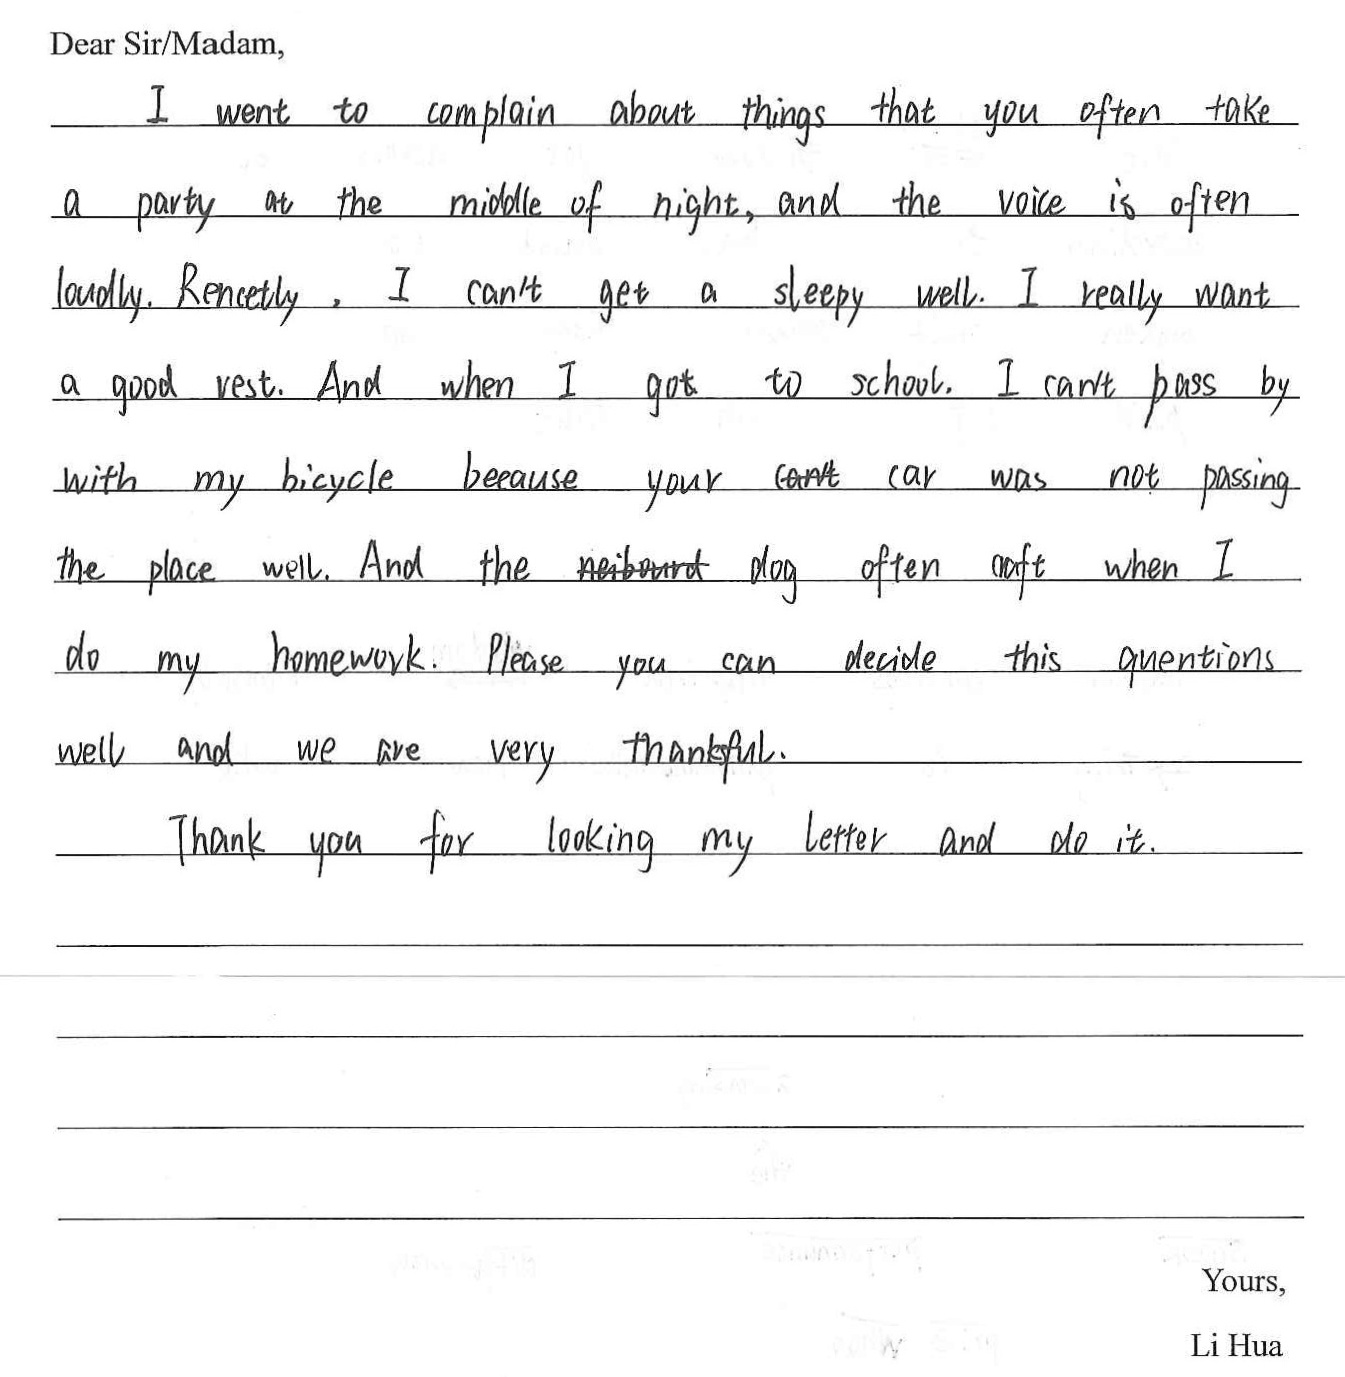 Dear Sir/Madam,
I went to complain about things that you often take
a party at the middle of night, and the voice is often
loudly. Rencetly, I can't get a sleepy well. I really want
a good rest. And when I got to school. I can't pass by
with my bicycle because your can't car was not passing
the place well. And the neibourd dog often when I
do my homework. Please you can decide this quentions
well and we are very thankful.
Thank you for looking my letter and do it.
Yours,
Li Hua